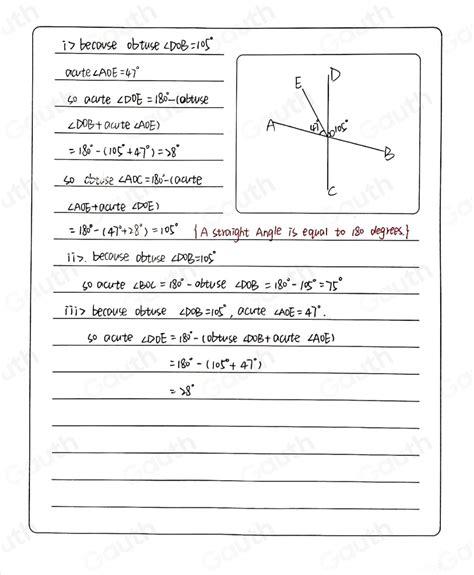 i> because obtuse ∠DOB=105°
acute ∠AOE=47°
so acute ∠DOE=180°-(obtuse
∠DOB+acute ∠AOE)
=180°-(105°+47°)=28°
so obtuse ∠AOC=180°-(acute
∠AOE+acute ∠DOE)
=180°-(47°+28°)=105° {A straight Angle is equal to 180 degrees.}
E
D
A
47°
105°
B
C
ii>. because obtuse ∠DOB=105°
so acute ∠BOC=180°-obtuse ∠DOB=180°-105°=75°
iii> because obtuse ∠DOB=105°, acute ∠AOE=47°.
so acute ∠DOE=180°-(obtuse ∠DOB+acute ∠AOE)
=180°-(105°+47°)
=28°
Gauth